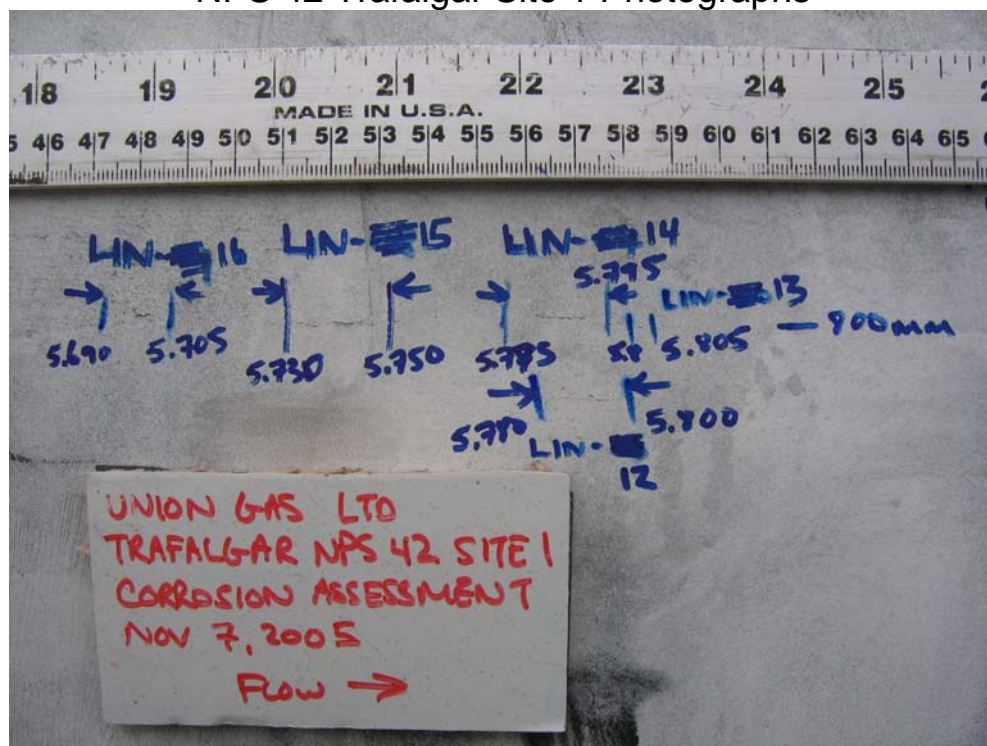 NPS 42 Trafalgar Site 1 Photographs
18 19 20 21 22 23 24 25
MADE IN U.S.A.
46 47 48 49 50 51 52 53 54 55 56 57 58 59 60 61 62 63 64 65
LIN- 16 LIN- 15 LIN- 14
5.795
LIN- 13
900mm
5.690 5.705 5.730 5.750 5.785 5.8 5.805
5.780 5.800
LIN-
12
UNION GAS LTD
TRAFALGAR NPS 42 SITE 1
CORROSION ASSESSMENT
NOV 7, 2005
FLOW →